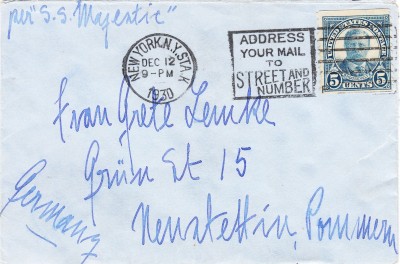 per "S.S. Majestic"
NEW YORK, N.Y. STA. K
DEC 12
9-PM
1930
ADDRESS
YOUR MAIL
TO
STREET AND
NUMBER
5 CENTS 5
Frau Grete Lemke
Grün St 15
Neustettin, Pommern
Germany